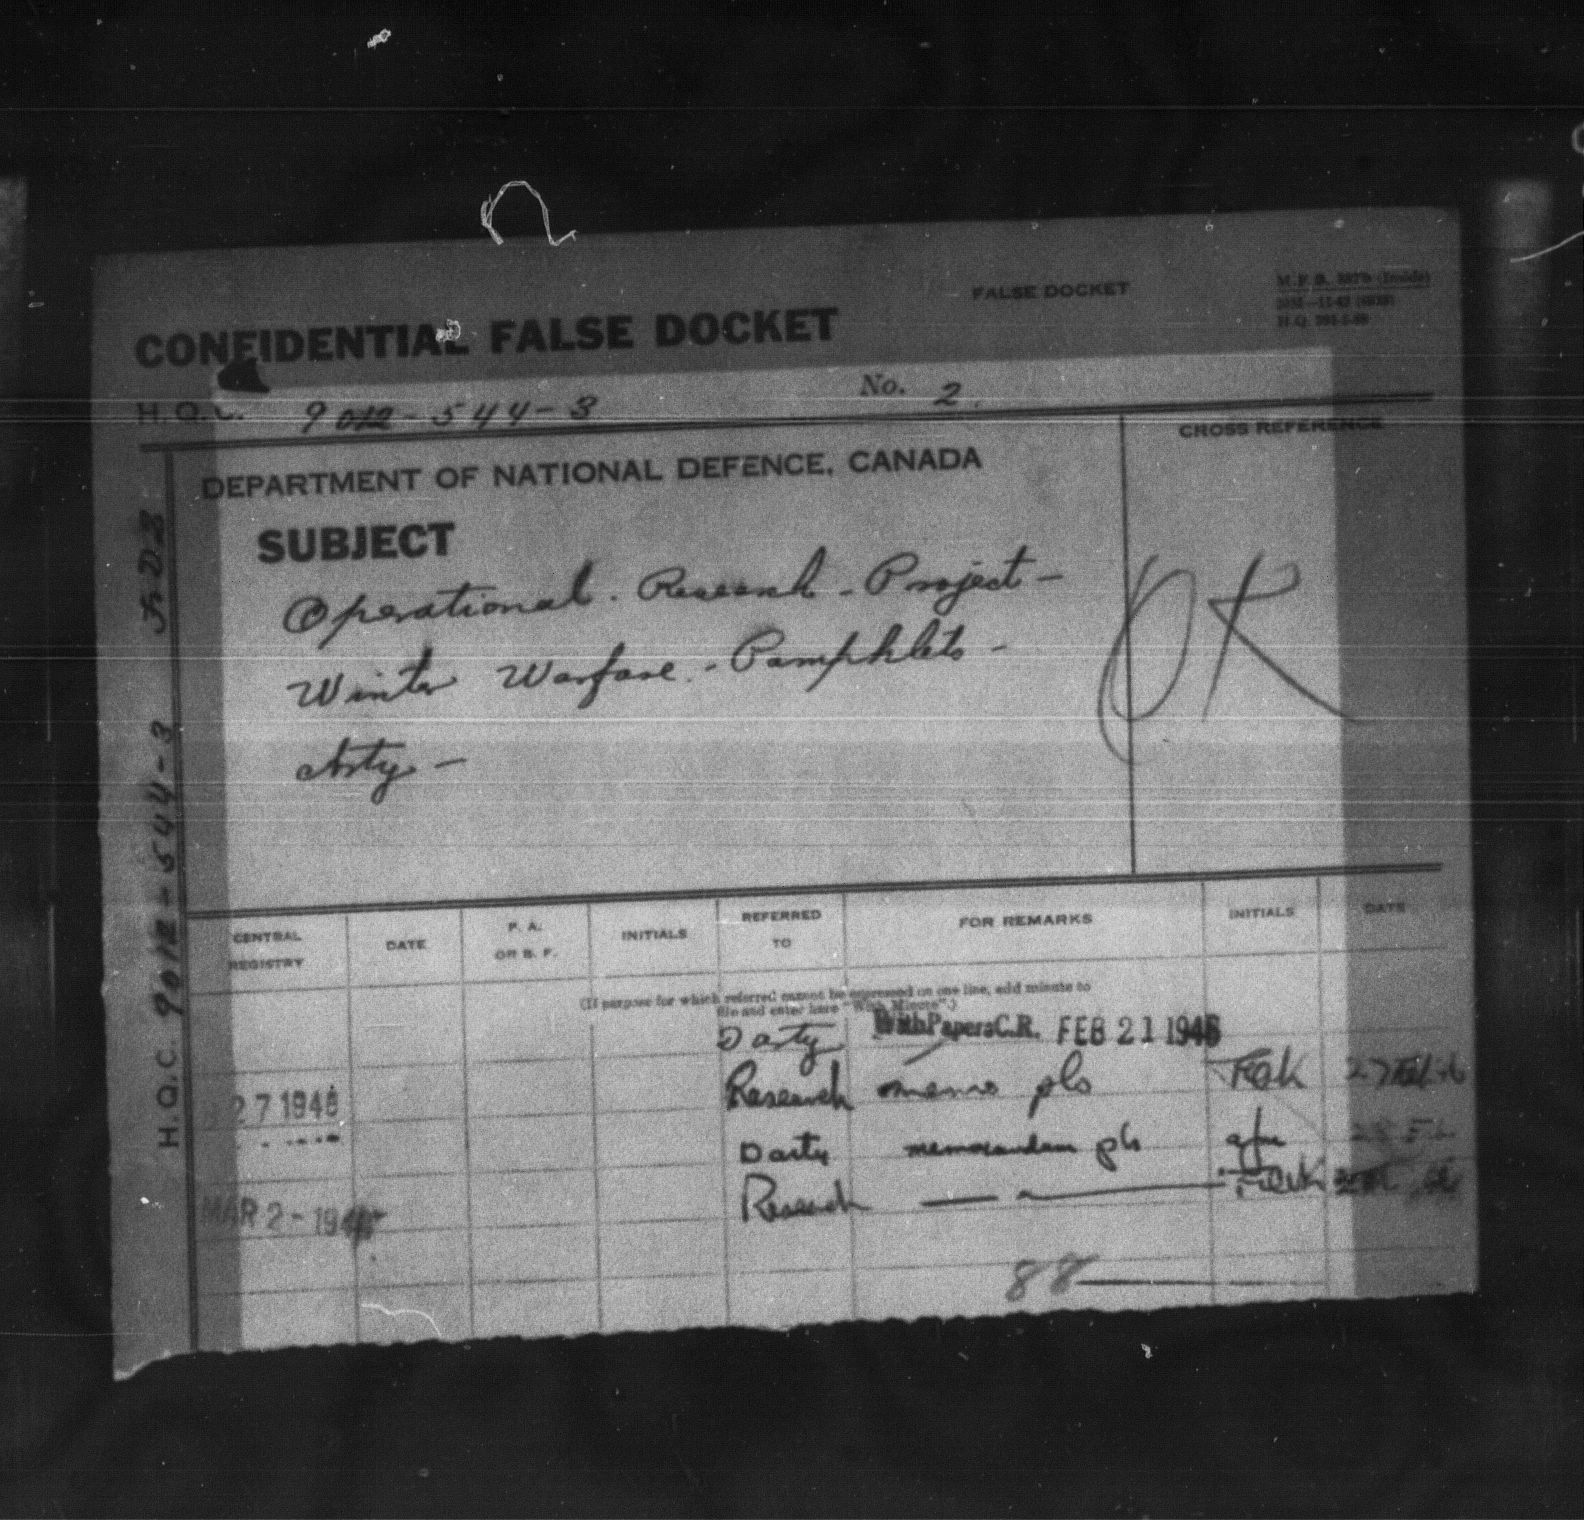 FALSE DOCKET
CONFIDENTIAL FALSE DOCKET
H.Q.C. 9012-544-3 No. 2.
CROSS REFERENCE
DEPARTMENT OF NATIONAL DEFENCE, CANADA
SUBJECT
Operational. Research - Project -
Winter Warfare. - Pamphlets -
Arty -
OK
H.Q.C. 9012-544-3
CENTRAL REGISTRY DATE P. A. OR B. F. INITIALS REFERRED TO FOR REMARKS INITIALS DATE
(If purpose for which referred cannot be expressed on one line, add minute to
file and enter here "With Minute".)
D arty With Papers C.R. FEB 21 1946
27 1946 Research memo pls
D arty memorandum pls
MAR 2 - 194 Research
88